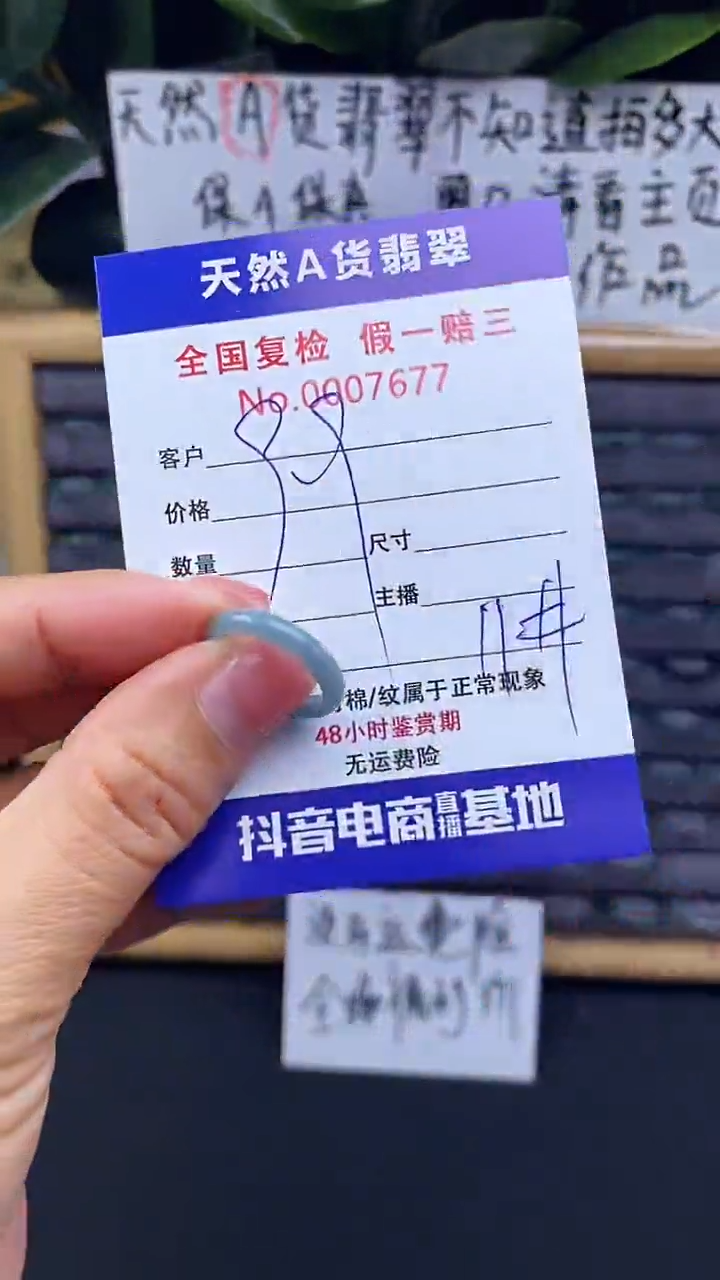 天然A货翡翠不知道拍多大
保A保真 圈口请看主页
作品
天然A货翡翠
全国复检 假一赔三
No.0007677
客户
价格
数量 尺寸
主播
棉/纹属于正常现象
48小时鉴赏期
无运费险
抖音电商直播基地
没有运费险